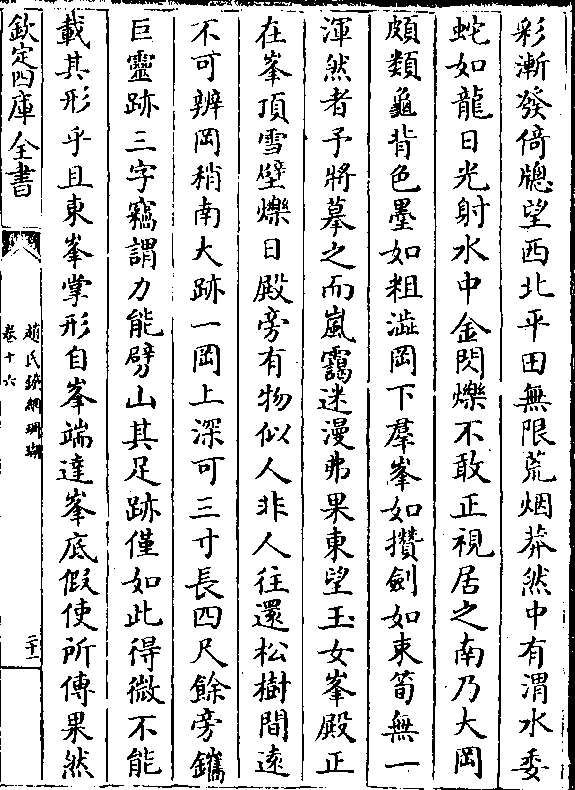 彩漸發倚牕望西北平田無限荒烟莽然中有渭水委
蛇如龍日光射水中金閃爍不敢正視居之南乃大岡
頗類龜背色墨如粗澁岡下羣峯如攢劍如束筍無一
渾然者予將摹之而嵐靄迷漫弗果東望玉女峯殿正
在峯頂雪壁爍日殿旁有物似人非人往還松樹間遠
不可辨岡稍南大跡一岡上深可三寸長四尺餘旁鐫
巨靈跡三字竊謂力能劈山其足跡僅如此得微不能
載其形乎且東峯掌形自峯端達峯底假使所傳果然
欽定四庫全書
趙氏鐵網珊瑚
卷十六
二十一